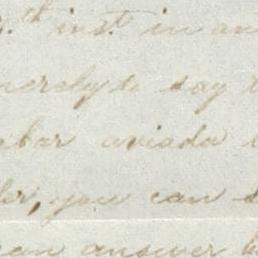 th inst. in an
merely to say
aviada
you can
can answer